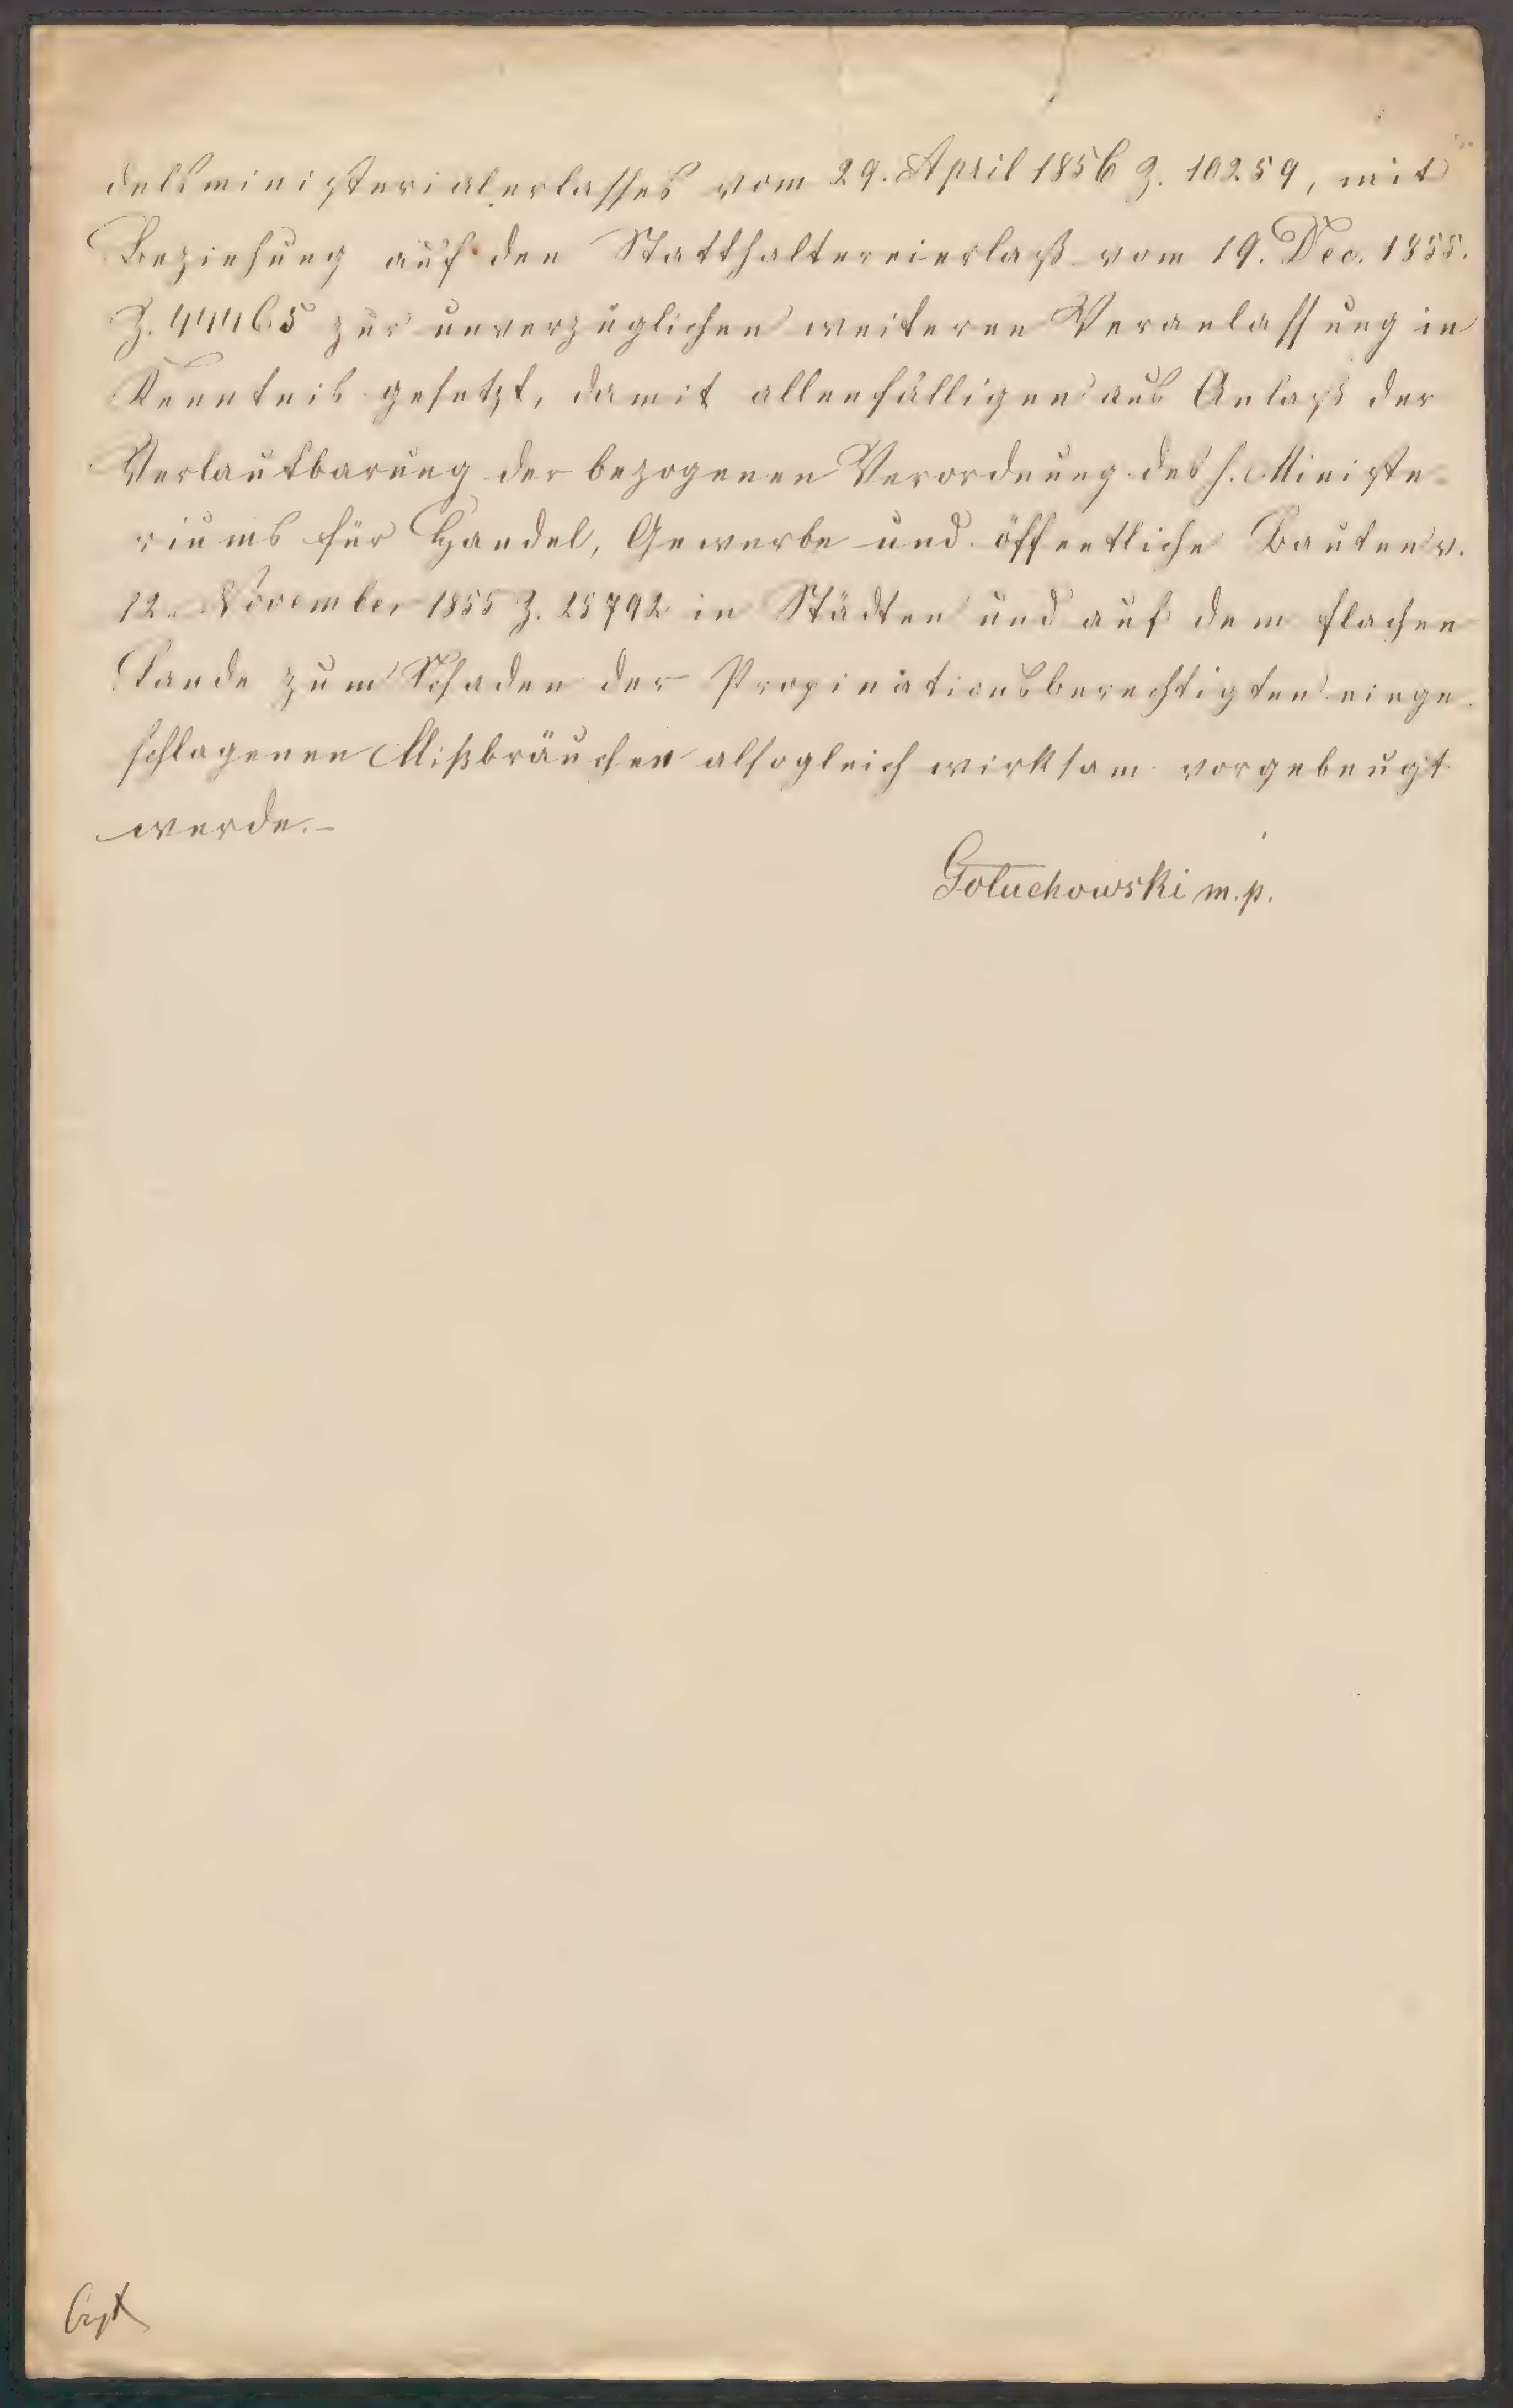 delsministerialerlasses vom 29. April 1856 Z. 10259, mit
Beziehung auf den Statthaltereierlaß vom 19. Dec. 1855.
Z. 44465 zur unverzüglichen weiteren Veranlassung in
Kenntnis gesetzt, damit allenfälligen aus Anlaß der
Verlautbarung der bezogenen Verordnung des h. Ministe-
riums für Handel, Gewerbe und öffentliche Bauten v.
12. November 1855 Z. 25792 in Städten und auf dem flachen
Lande zum Schaden der Propinationsberechtigten einge-
schlagenen Mißbräuchen alsogleich wirksam vorgebeugt
werde.-
Gołuchowski m. p.